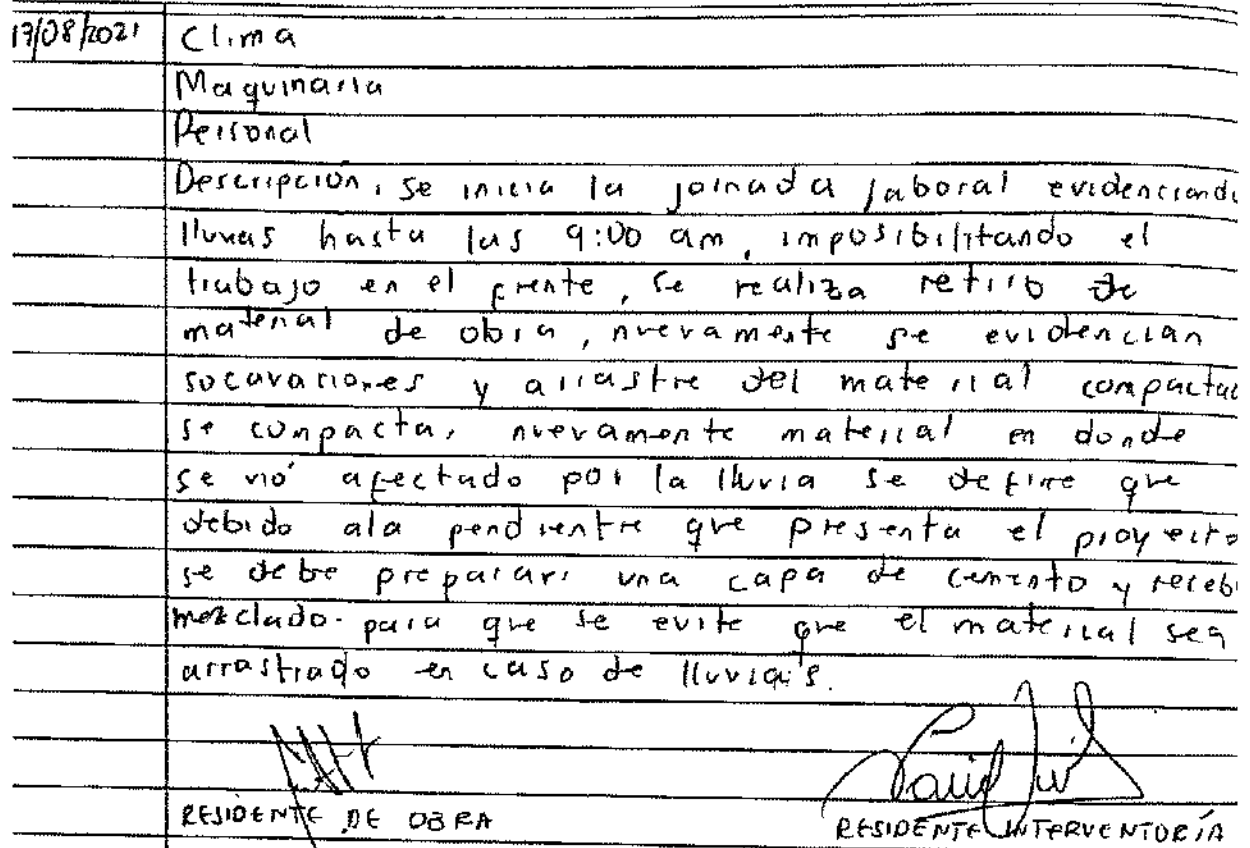 17/08/2021 Clima
Maquinaria
Personal
Descripción, se inicia la jornada laboral evidenciando
lluvias hasta las 9:00 am, imposibilitando el
trabajo en el frente, se realiza retiro de
material de obra, nuevamente se evidencian
socavaciones y arrastre del material compactad
se compacta, nuevamente material en donde
se vió afectado por la lluvia se define que
debido ala pendientre que presenta el proyecto
se debe preparar una capa de cemento y recebo
mezclado. para que se evite que el material sea
arrastrado en caso de lluvias.
RESIDENTE DE OBRA RESIDENTE INTERVENTORÍA